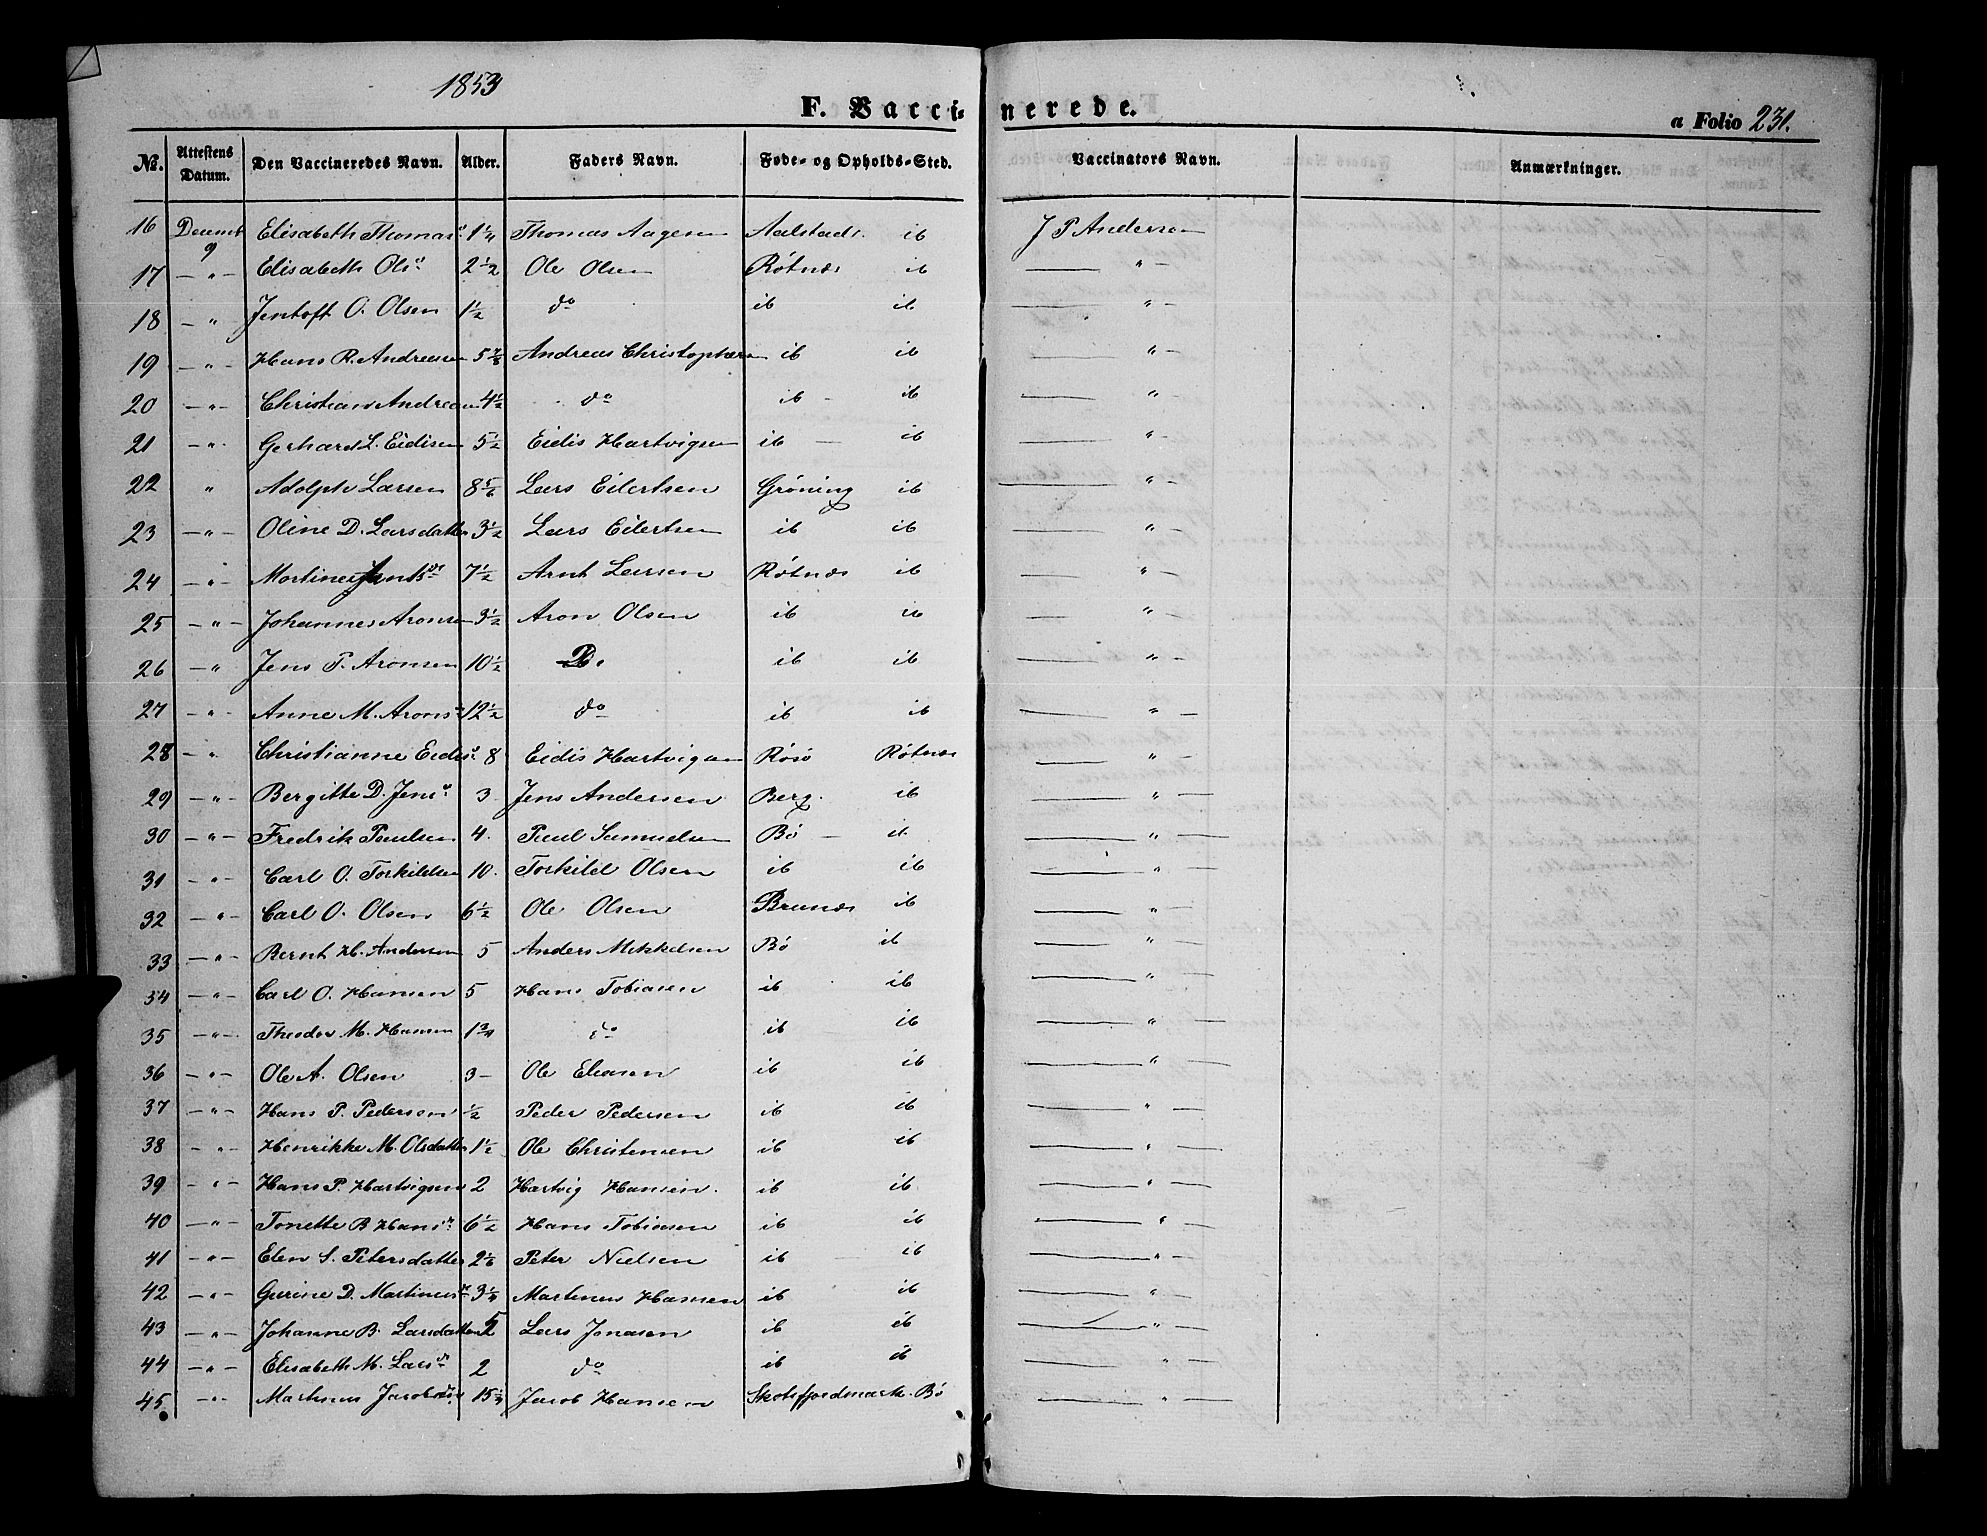 1853
F. Vaccinerede.
a Folio 231.
No. Attestens Datum. Den Vaccineredes Navn. Alder. Faders Navn. Føde- og Opholds-Sted. Vaccinators Navn. Anmærkninger.
16 Decemb 9 Elisabeth Thomasd 1 1/4 Thomas Aagesen Aalstads. ib J P Andersen
17 — " — Elisabeth Olsd 2 1/2 Ole Olsen Røtnæs ib — " —
18 — " Jentoft O. Olsen 1 1/2 do ib ib — " —
19 — " — Hans R. Andreasen Andreas Christophersen ib ib — " —
20 — " — Christian Andreasen 4 1/2 do ib — ib — " —
21 — " Gerhard L. Eidisen 5 1/2 Eidis Hartvigsen ib — ib — " —
22 " Adolph Larsen 8 5/6 Lars Eilertsen Gröning ib — " —
23 — " — Oline D. Larsdatter 3 1/2 Lars Eilertsen ib ib — " —
24 — " — Arntsdr 7 1/2 Arnt Larsen Røtnæs ib — " —
25 — " — Johannes Aronsen 3 1/2 Aron Olsen ib ib — " —
26 — " Jens P. Aronsen 10 1/2 Do ib ib — " —
27 — " Anne M. Aronsd 12 1/2 do ib ib — " —
28 — " Christianne Eidisd 8 Eidis Hartvigsen Røsö Røtnæs — " —
29 — " — Bergitte D. Jensd 3 Jens Andersen Berg. ib — " —
30 — " — Fredrik Paulsen 4. Paul Samuelsen Bö — ib — " —
31 — " — Carl O. Torkildsen 10. Torkild Olsen ib ib — " —
32 — " — Carl O. Olsen 6 1/2 Ole Olsen Brunæs ib — " —
33 — " — Bernt H. Andersen 5 Anders Mikkelsen Bö ib — " —
34 — " — Carl O. Hansen 5 Hans Tobiasen ib ib — " —
35 — " — Theodor M. Hansen 1 3/4 do ib ib — " —
36 — " — Ole A. Olsen 3 — Ole Eliasen ib ib — " —
37 — " — Hans P. Pedersen 1/2 Peder Pedersen ib ib — " —
38 — " — Henrikke M. Olsdatter 1 1/2 Ole Christensen ib ib — " —
39 — " — Hans P. Hartvigsen 2 Hartvig Hansen. ib ib — " —
40 — " — Tonette B Hansd 6 1/2 Hans Tobiasen ib ib — " —
41 — " — Elen S. Petersdatter 2 1/6 Peter Nielsen ib ib — " —
42 — " — Gurine D. Martinusd Martinus Hansen ib ib — " —
43 — " — Johanne B. Larsdatter Lars Jonasen ib ib — " —
44 — " — Elisabeth M. Larsdr 2 do ib ib — " —
45 — " — Martinus Jacobsen Jacob Hansen Skotsfjordmark. Bö — " —